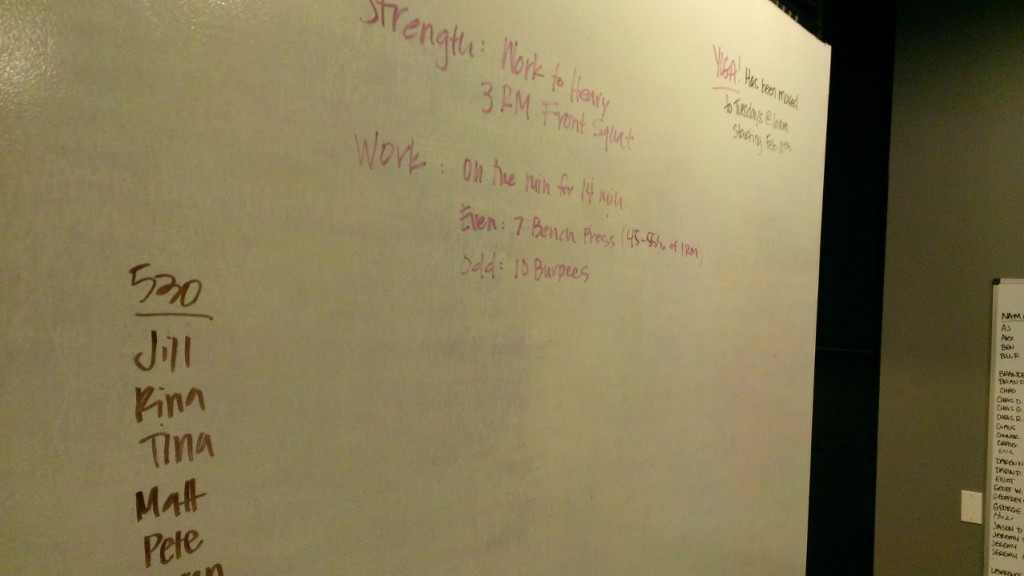 Strength: Work to Heavy
3 RM Front Squat
Work: On the min for 14 min
Even: 7 Bench Press (45-55% of 1RM)
Odd: 10 Burpees
YOGA! Has been moved
to Tuesdays @
Starting Feb
530
Jill
Rina
Tina
Matt
Pete
NAM
AJ
ALEX
BEN
BILL F.
BRANDE
BRAND
CHAD
CHRIS D
CHRIS G
CHRIS R.
CRAIG
DARREN
ELLIOT
GEOFF W.
GEOFFREY
GEORGE
JASON D
JEREMY
JEREMY
JEREMY
LAWRENCE